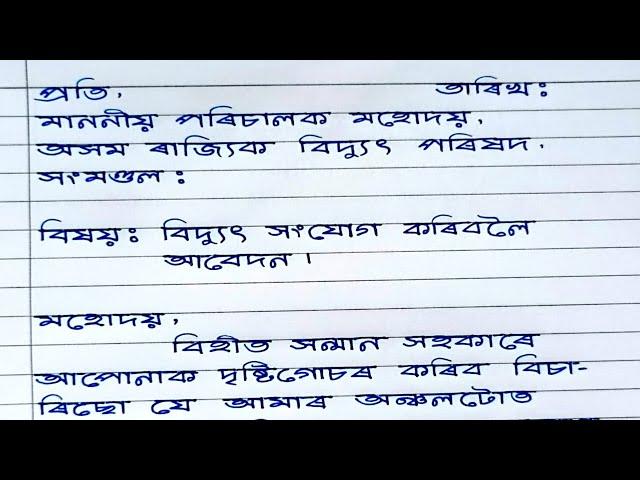 প্ৰতি, তাৰিখঃ
মাননীয় পৰিচালক মহোদয়,
অসম ৰাজ্যিক বিদ্যুৎ পৰিষদ,
সংমণ্ডলঃ
বিষয়ঃ বিদ্যুৎ সংযোগ কৰিবলৈ
আবেদন।
মহোদয়,
বিহীত সন্মান সহকাৰে
আপোনাক দৃষ্টিগোচৰ কৰিব বিচা-
ৰিছো যে আমাৰ অঞ্চলটোত